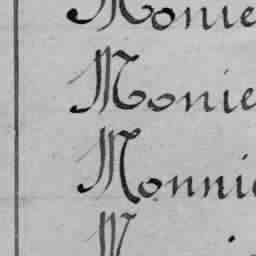 Monie
Monie
Monni